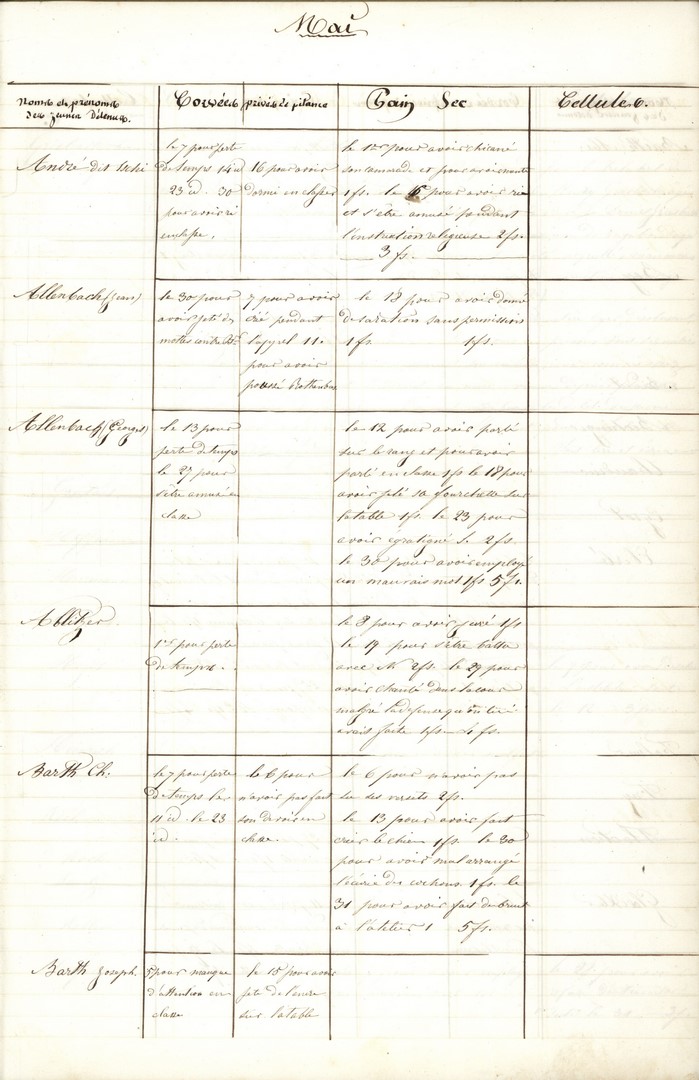 Mai
Noms et prénoms
des jeunes Détenus.
Corvées
privés de pitance
Pain Sec
Cellules.
André dit
le 7 pour perte
de temps 14 id
23 id. 30
pour avoir ri
en classe.
16 pour avoir
dormi en classe
le 1er pour avoir chicané
son camarade et pour avoir
1 fs. le 16 pour avoir ri
et s'être amusé pendant
l'instruction religieuse 2 fs.
3 fs.
Allenbach (Jean)
le 30 pour
avoir jeté des
mottes contre
7 pour avoir
crié pendant
l'appel 11.
pour avoir
poussé
le 18 pour avoir donné
de sa ration sans permission
1 fs. 1 fs.
Allenbach (Georges)
le 13 pour
perte de temps
le 27 pour
s'être amusé en
classe
le 12 pour avoir parlé
sur le rang et pour avoir
parlé en classe 1 fs le 18 pour
avoir jeté sa fourchette sur
la table 1 fs. le 23 pour
avoir égratigné S. 2 fs.
le 30 pour avoir employé
un mauvais mot 1 fs 5 fs.
1er pour perte
de temps
le 8 pour avoir juré 1 fs
le 19 pour s'être battu
avec M 2 fs. le 29 pour
avoir chanté dans la cour
malgré la défense qu'on lui
avait faite 1 fs – 4 fs.
Barth Ch.
le 7 pour perte
de temps les
11 id. le 23
id.
le 6 pour
n'avoir pas fait
son devoir en
classe.
le 6 pour n'avoir pas
su ses versets 2 fs.
le 13 pour avoir fait
crier le chien 1 fs. le 30
pour avoir mal arrangé
l'écurie des cochons 1 fs. le
31 pour avoir fait du bruit
à l'atelier 1 5 fs.
Barth Joseph.
5 pour manque
d'attention en
classe
le 15 pour avoir
jeté de l'encre
sur la table